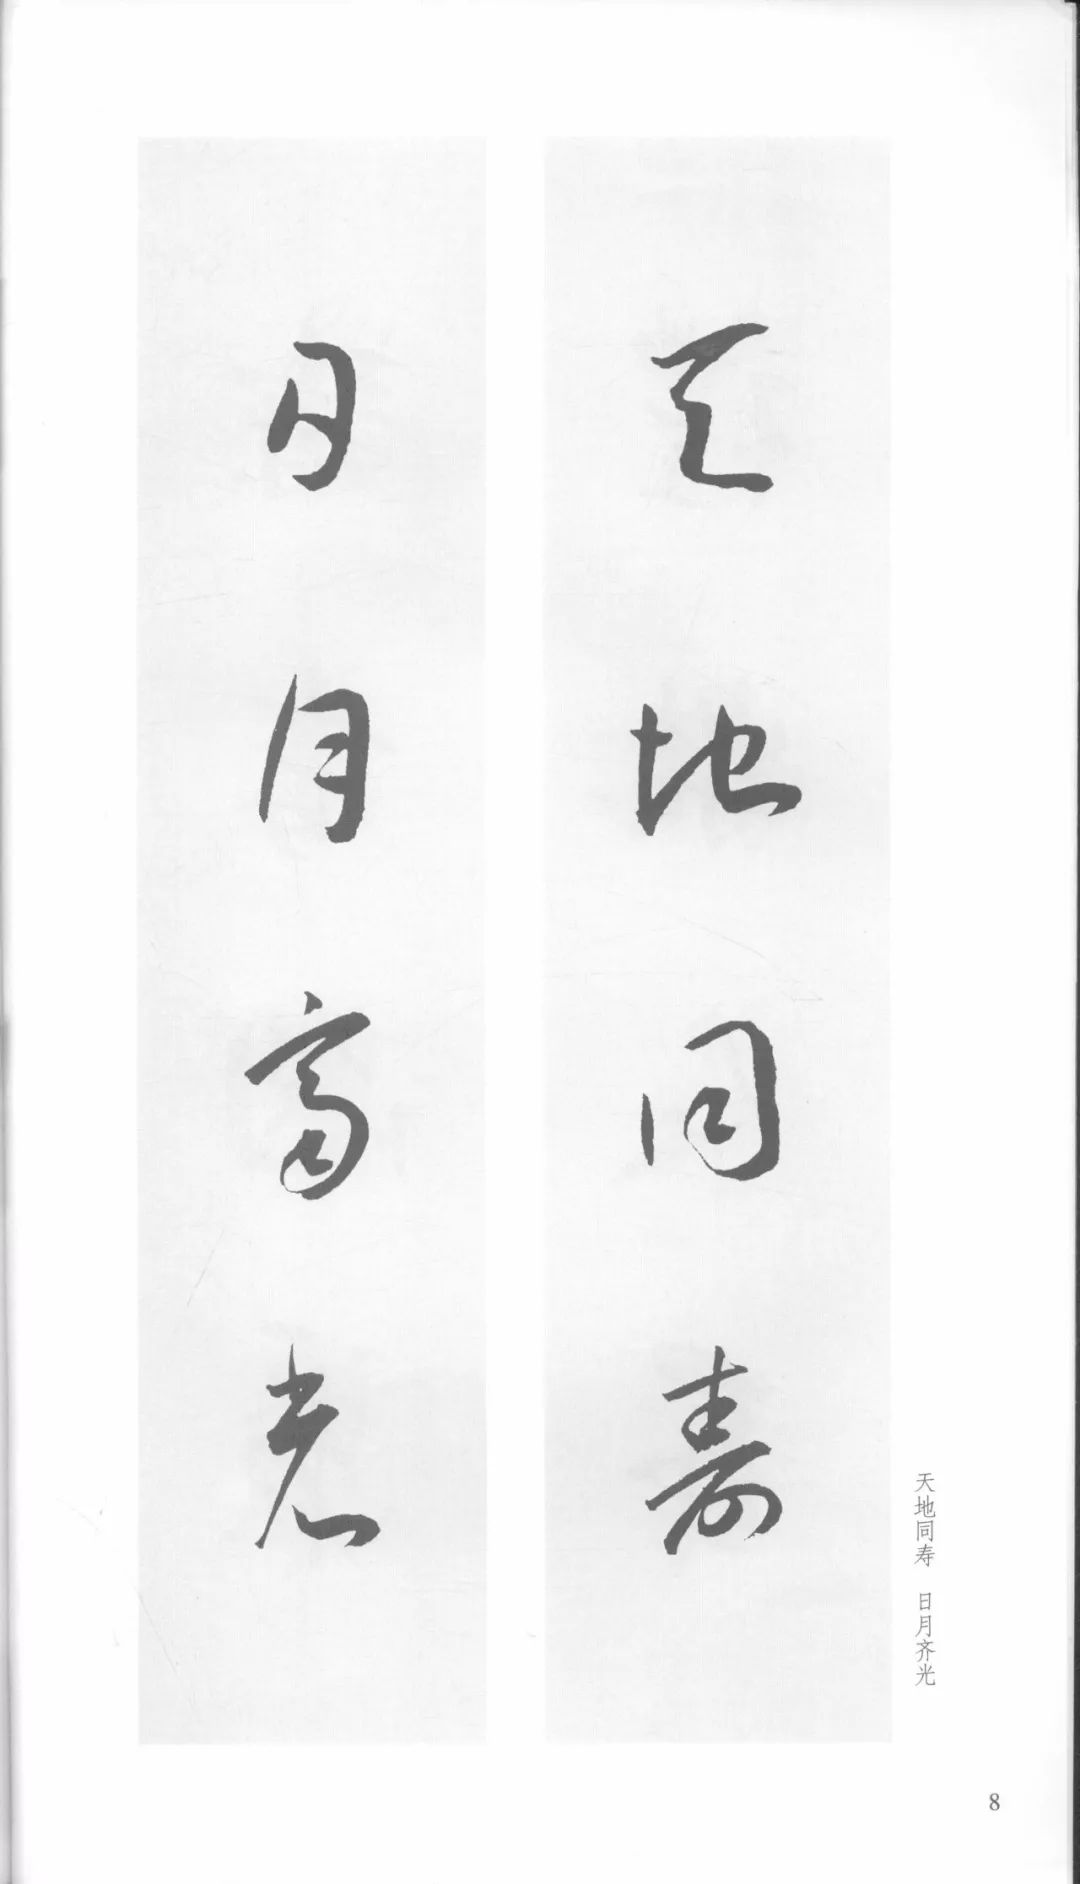 天地同寿
日月齐光
天地同寿 日月齐光
8